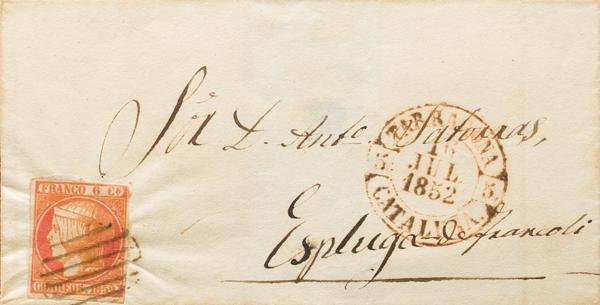 Sór. D. Antᵒ Satorras,
Espluga de francoli
TARRAGONA
JUL
1852
CATALUÑA
FRANCO 6 Cs
CORREOS 1852